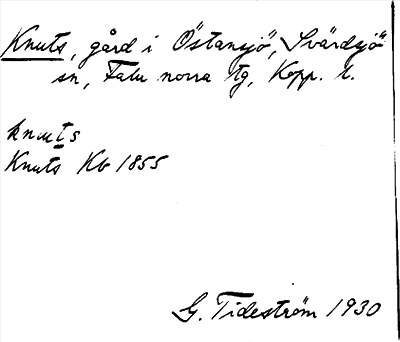 Knuts, gård i Östansjö, Svärdsjö
sn, Falu norra tg, Kopp. l.
knuts
Knuts Kb 1855
G. Tideström 1930